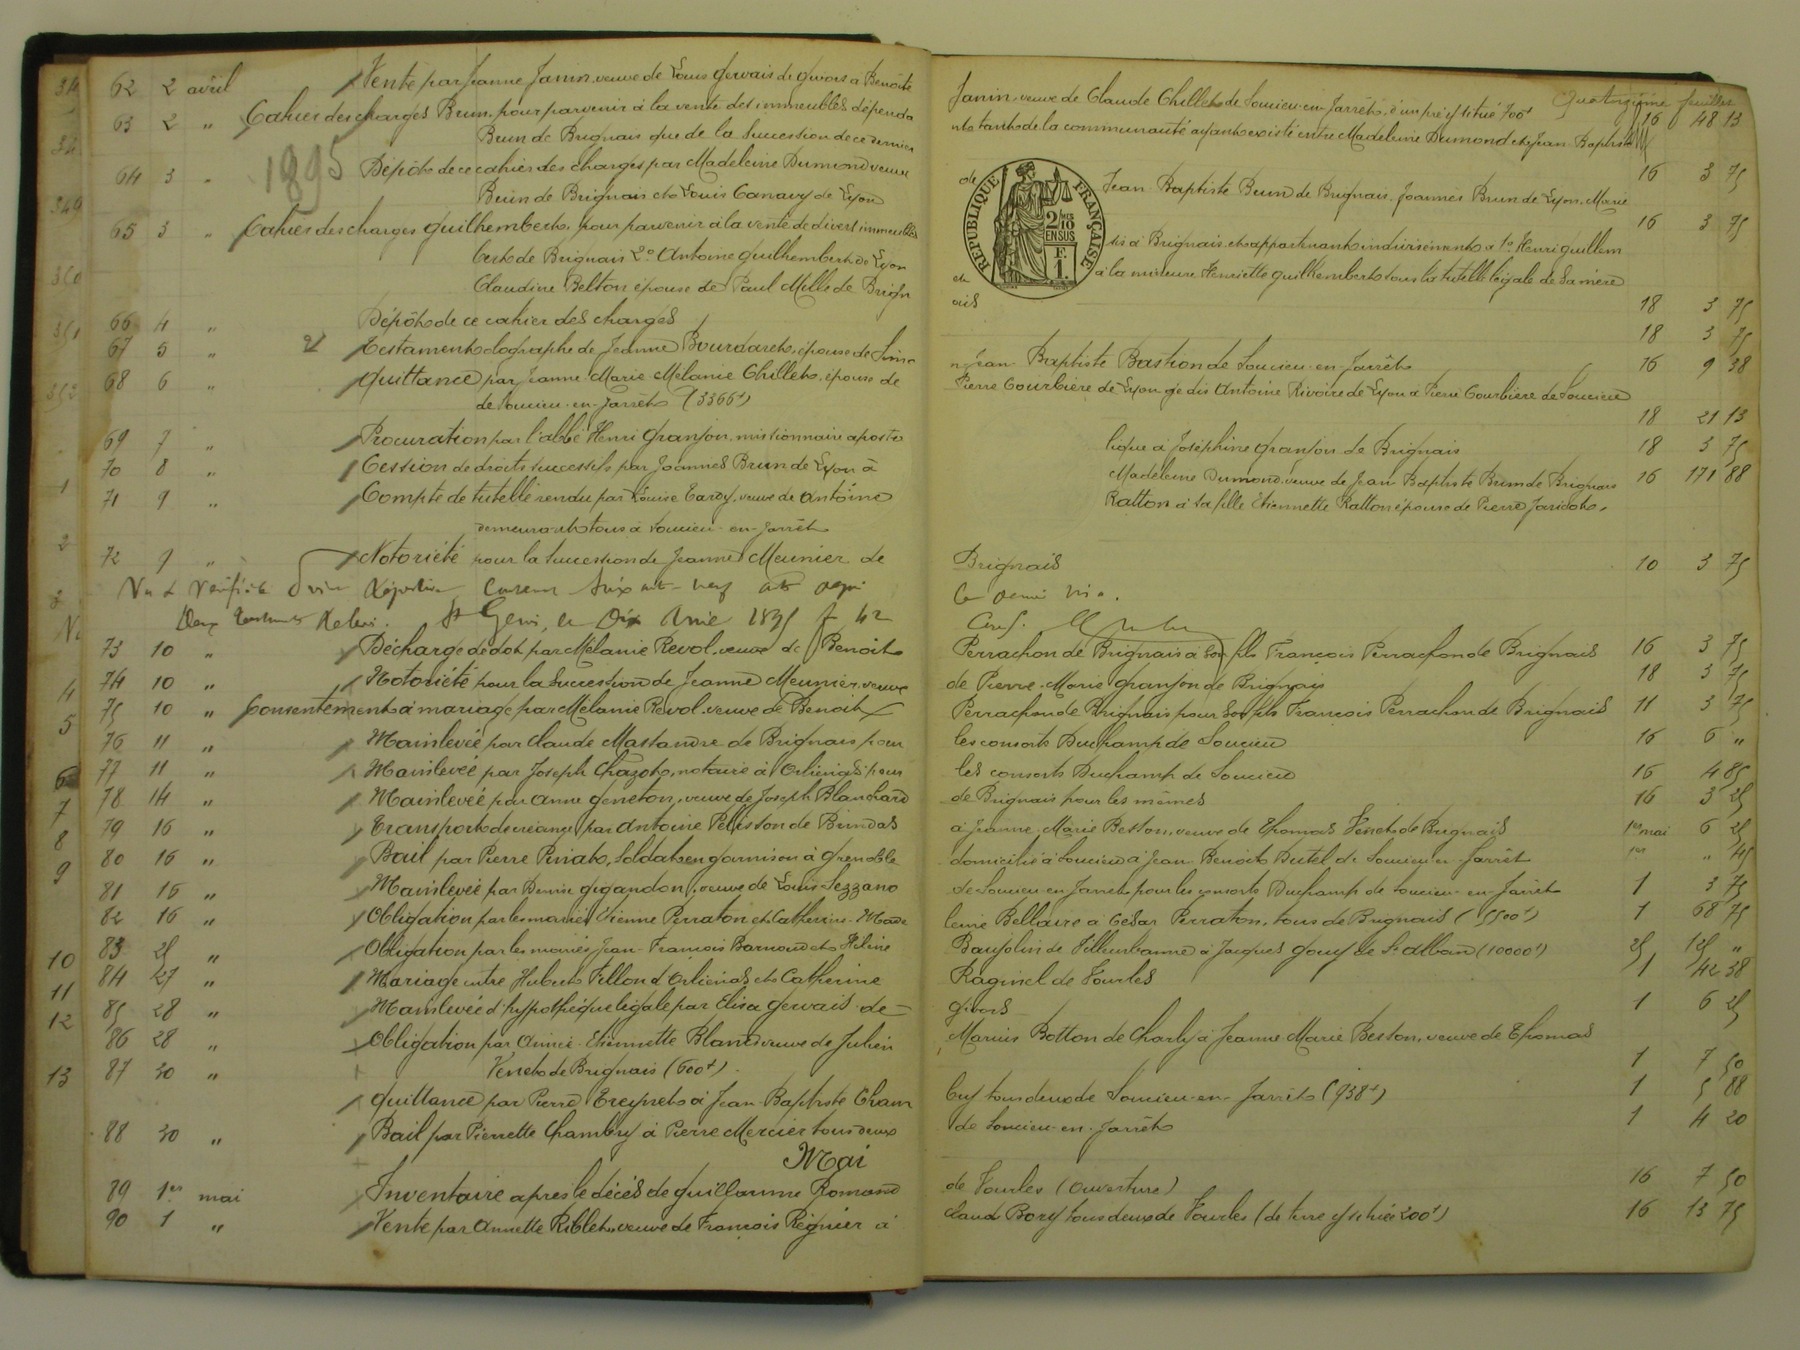 Quatorzième feuillet
62 2 avril Vente par Jeanne Janin, veuve de Louis Gervais de Givors à Benoite Janin, veuve de Claude Chillet de Soucieu-en-Jarrêt, d'un pré y situé 700f 16 48 13
63 2 " Cahier des charges Brun, pour parvenir à la vente des immeubles dépenda nts tant de la communauté ayant existé entre Madeleine Dumond et Jean-Baptiste
Brun de Brignais que de la succession de ce dernier 16 3 75
1895
64 3 " Dépôt de ce cahier des charges par Madeleine Dumond veuve de Jean-Baptiste Brun de Brignais, Joannès Brun de Lyon, Marie
Brun de Brignais et Louis Canavy de Lyon 16 3 75
RÉPUBLIQUE FRANÇAISE
65 3 " Cahier des charges Guilhembert, pour parvenir à la vente de divers immeubles sis à Brignais et appartenant indivisément à 1o Henri Guillem
bert de Brignais 2o Antoine Guilhembert de Lyon et à la mineure Henriette Guilhembert sous la tutelle légale de sa mère
Claudine Belton épouse de Paul Mille de Brign ais 18 3 75
66 4 " Dépôt de ce cahier des charges 18 3 75
67 5 " Testament olographe de Jeanne Bourdaret, épouse de Jean-Baptiste Bastion de Soucieu-en-Jarrêt 16 9 38
68 6 " Quittance par Jeanne-Marie-Mélanie Chillet, épouse de Pierre Courbière de Lyon et Antoine Rivoire de Lyon à Pierre Courbière de Soucieu
de Soucieu-en-Jarrêt (3366f) 18 21 13
69 7 " Procuration par l'abbé Henri Granjon, missionnaire aposto lique à Joséphine Granjon de Brignais 18 3 75
70 8 " Cession de droits successifs par Joannès Brun de Lyon à Madeleine Dumond, veuve de Jean-Baptiste Brun de Brignais 16 171 88
71 9 " Compte de tutelle rendu par Louise Tardy, veuve de Antoine Ratton à sa fille Etiennette Ratton épouse de Pierre Jaricot,
demeurant tous à Soucieu-en-Jarrêt
72 9 " Notoriété pour la succession de Jeanne Meunier de Brignais 10 3 75
Vu et Vérifié
St Genis, le Dix Avril 1895 f 42
73 10 " Décharge de dot par Mélanie Revol, veuve de Benoit Perrachon de Brignais à son fils François Perrachon de Brignais 16 3 75
74 10 " Notoriété pour la succession de Jeanne Meunier, veuve de Pierre-Marie Granjon de Brignais 18 3 75
75 10 " Consentement à mariage par Mélanie Revol, veuve de Benoit Perrachon de Brignais pour son fils François Perrachon de Brignais 11 3 75
76 11 " Mainlevée par Claude Mastandre de Brignais pour les consorts Duchamp de Soucieu 16 6 "
77 11 " Mainlevée par Joseph Chazot, notaire à Orliénas pour les consorts Duchamp de Soucieu 16 4 85
78 14 " Mainlevée par Anne Geneton, veuve de Joseph Blanchard de Brignais pour les mêmes 16 3 25
79 16 " Transport de créance par Antoine Pélisson de Brindas à Jeanne-Marie Beston, veuve de Thomas Venet de Brignais 1er mai 6 25
80 16 " Bail par Pierre Piriat, soldat en garnison à Grenoble domicilié à Soucieu à Jean-Benoit Dutel de Soucieu-en-Jarrêt 1er " 45
81 16 " Mainlevée par Denise Gigandon, veuve de Louis Lezzano de Soucieu-en-Jarrêt pour les consorts Duchamp de Soucieu-en-Jarrêt 1 3 75
82 16 " Obligation par les mariés Etienne Perraton et Catherine-Made leine Bellaire à César Perraton, tous de Brignais (5500f) 1 68 75
83 25 " Obligation par les mariés Jean-François Barnoud et Héline Baujolin de Villeurbanne à Jacques Gouy de St Alban (10000f) 25 125 "
84 27 " Mariage entre Hubert Fillon d'Orliénas et Catherine Raginel de Vourles 1 42 38
85 28 " Mainlevée d'hypothèque légale par Elisa Gervais de Givors 1 6 25
86 28 " Obligation par Aimée-Etiennette Blanc veuve de Julien Marius Botton de Charly à Jeanne-Marie Besson, veuve de Thomas
Venet de Brignais (600f) 1 7 50
87 30 " Quittance par Pierre Treynet à Jean-Baptiste Cham buy tous deux de Soucieu-en-Jarrêt (938f) 1 5 88
88 30 " Bail par Pierrette Chambry à Pierre Mercier tous deux de Soucieu-en-Jarrêt 1 4 20
Mai
89 1er mai Inventaire après le décès de Guillaume Romand de Vourles (Ouverture) 16 7 50
90 1 " Vente par Annette Riblet, veuve de François Régnier à Claude Bory tous deux de Vourles (de terre y située 200f) 16 13 75